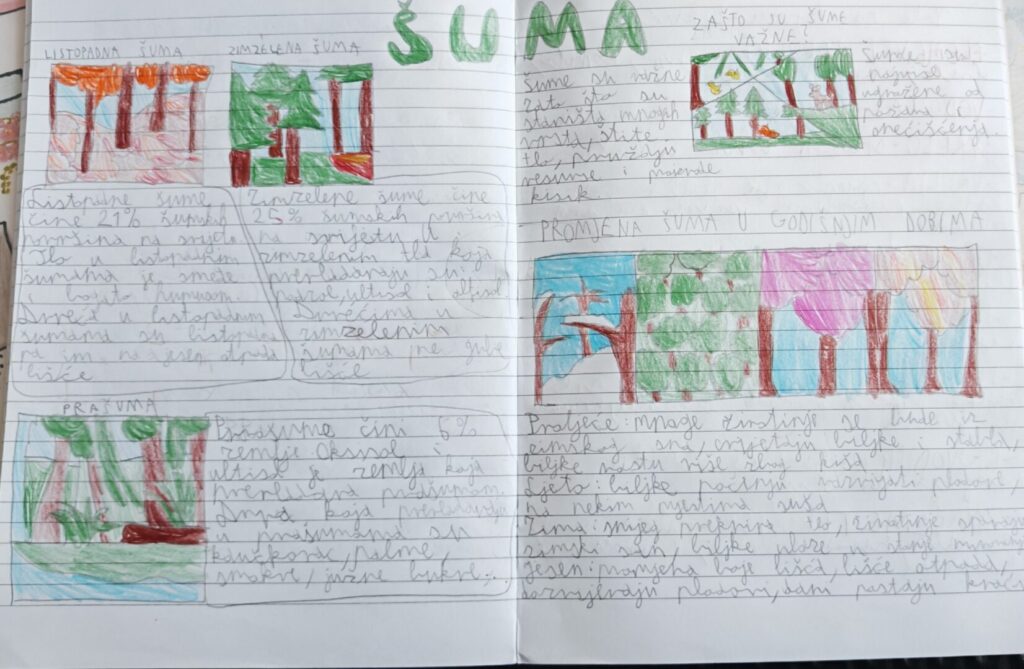 ŠUMA
LISTOPADNA ŠUMA
ZIMZELENA ŠUMA
Listopadne šume
čine 21% šumskih
površina na svijetu
Tlo u listopadnim
šumama je smeđe
i bogato humusom
Drveće u listopadnim
šumama su listopadna
pa im na jesen otpada
lišće
Zimzelene šume čine
25% šumskih površina
na svijetu. U
zimzelenim tla koja
prevladavaju su:
podzol, ultisol i alfisol.
Drvećima u
zimzelenim
šumama ne gube
lišće
PRAŠUMA
Prašume čini 5%
zemlje. Oksisol i
ultisol je zemlja koja
prevladava prašumom.
Drva koja prevladavaju
u prašumama su
kaučukovac, palme,
smokve, južne bukve...
ZAŠTO SU ŠUME
VAŽNE?
Šume su važne
zato što su
stanište mnogih
vrsta, štite
tlo, pružaju
resurse i proizvode
kisik.
Šume su
najviše
ugrožene od
požara i
onečišćenja.
PROMJENA ŠUMA U GODIŠNJIM DOBIMA
Proljeće: mnoge životinje se bude iz
zimskog sna, cvjetaju biljke i stabla,
biljke rastu više zbog kiša
Ljeto: biljke počinju razvijati plodove,
na nekim mjestima suša
Zima: snijeg prekriva tlo, životinje spavaju
zimski san, biljke ulaze u stanje mirovanja
Jesen: promjena boje lišća, lišće otpada,
dozrijevaju plodovi, dani postaju kraći